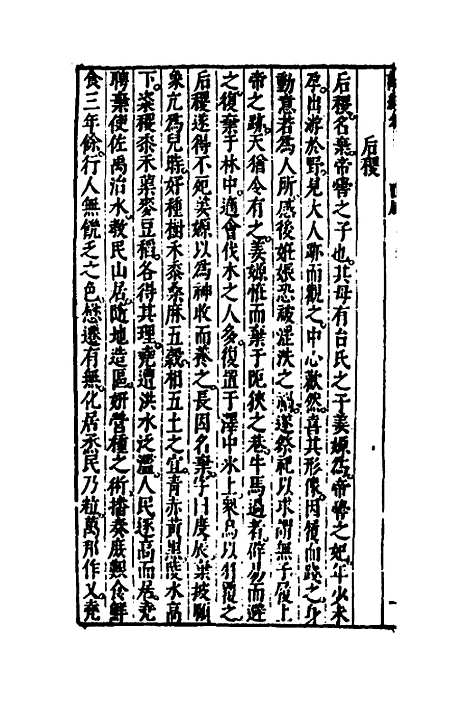 后稷
后稷名棄帝嚳之子也其母有台氏之子姜嫄為帝嚳之妃年少未
孕出游於野見大人跡而觀之中心歡然喜其形像因履而踐之身
動意若為人所感後妊娠恐被淫泆之禍遂祭祀以求謂無子履上
帝之跡天猶令有之姜嫄怪而棄于阨狹之巷牛馬過者辟易而避
之復棄于林中適會伐木之人多復置于澤中氷上衆鳥以羽覆之
后稷遂得不死姜嫄以為神收而養之長因名棄
衆亢為兒時好種樹禾黍桑麻五穀相五土之宜青赤黃黑陵水高
下粢稷黍禾蕖麥豆稻各得其理堯遭洪水泛濫人民逐高而居堯
聘棄使佐禹治水教民山居隨地造區妍營種之術播奏庶艱食鮮
食三年餘行人無饑乏之色懋遷有無化居烝民乃粒萬邦作乂堯